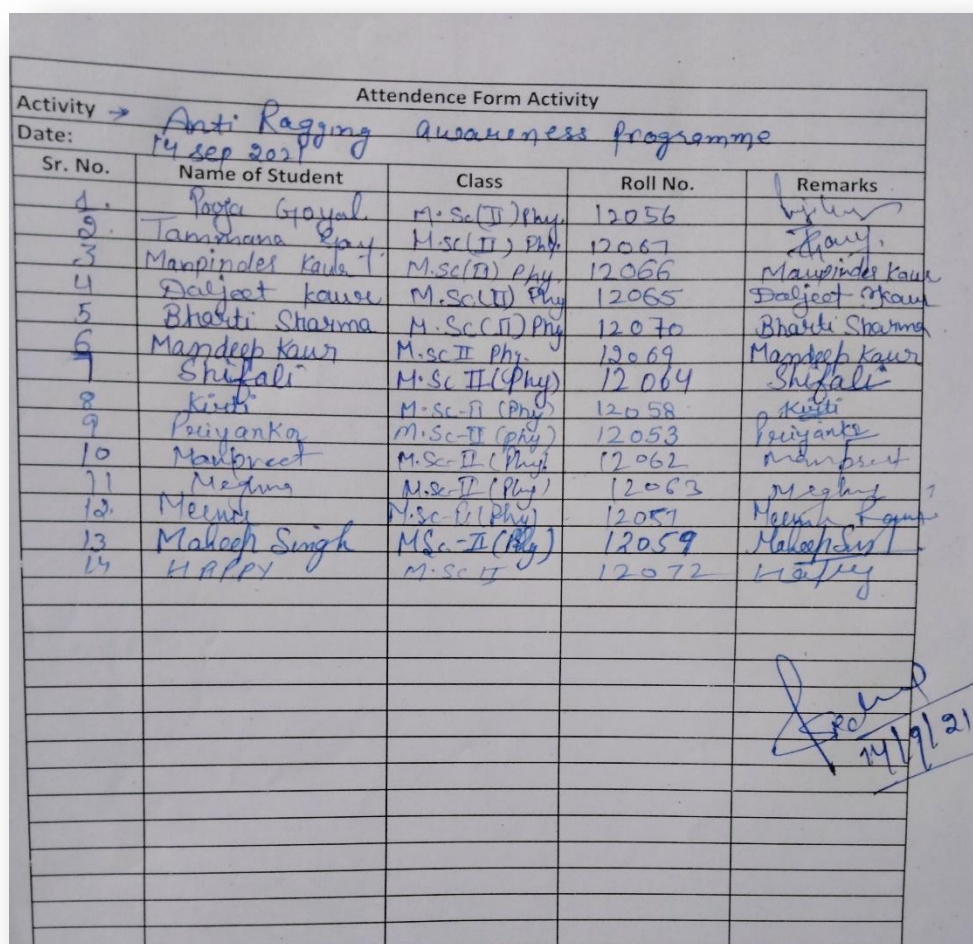 Attendence Form Activity
Activity → Anti Ragging awareness Programme
Date: 14 Sep 2021
Sr. No. Name of Student Class Roll No. Remarks
1. Pooja Goyal M.Sc(II) Phy. 12056
2. Tammana M.Sc(II) Phy. 12067
3 Manpinder Kaur M.Sc(II) Phy 12066 Manpinder Kaur
4 Daljeet kaur M.Sc(II) Phy 12065 Daljeet Kaur
5 Bharti Sharma M.Sc(II) Phy 12070 Bharti Sharma
6 Mandeep Kaur M.Sc II Phy. 12069 Mandeep Kaur
7 Shifali M.Sc II (Phy) 12064 Shifali
8 Kirti M.Sc-II (Phy) 12058 Kirti
9 Priyanka M.Sc-II (Phy) 12053 Priyanka
10 Manpreet M.Sc-II (Phy) 12062 Manpreet
11 Meghna M.Sc-II (Phy) 12063 Meghna
12. Meenu M.Sc-II (Phy) 12057
13 Maheep Singh MSc-II (Phy) 12059 Maheep
14 HAPPY M.Sc II 12072 Happy
14/9/21